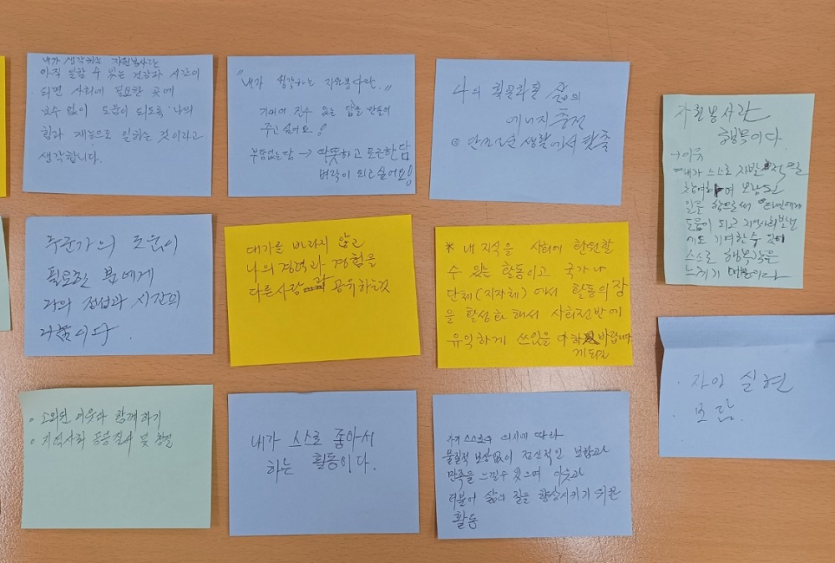 내가 생각하는 자원봉사는
아직 일할 수 있는 건강과 시간이
되면 사회에 필요한 곳에
보수 없이 도움이 되도록 나의
힘과 재능으로 일하는 것이라고
생각합니다.
"내가 생각하는 자원봉사란,,
주고 싶어요!
부담없는 담 → 따뜻하고 포근한 담
벼락이 되고 싶어요!
나의 활동 삶의
에너지 충전
단조로운 생활에서 탈출
자원봉사란
행복이다.
→ 이유
내가 스스로
참여하여 보람된
일을 함으로써 타인에게
도움이 되고 지역사회발전
에도 기여할 수 있어
스스로 행복감을
느끼기 때문이다
누군가의 도움이
필요로한 분에게
나의 정성과 시간의
나눔이다.
대가를 바라지 않고
나의 경력과 경험을
다른사람 공유하는것
* 내 지식을 사회에 환원할
수 있는 활동이고 국가나
단체(지자체)에서 활동의 장
을 활성화 해서 사회전반에
유익하게 쓰있을 바랍니다
· 자아 실현
· 보람.
소외된 이웃과 함께하기
지역사회 및
내가 스스로 좋아서
하는 활동이다.
의지에 따라
물질적 보상없이 정신적인 보람과
만족을 느낄수 있으며 이웃과
더불어 삶의 질을 향상시키기 위한
활동